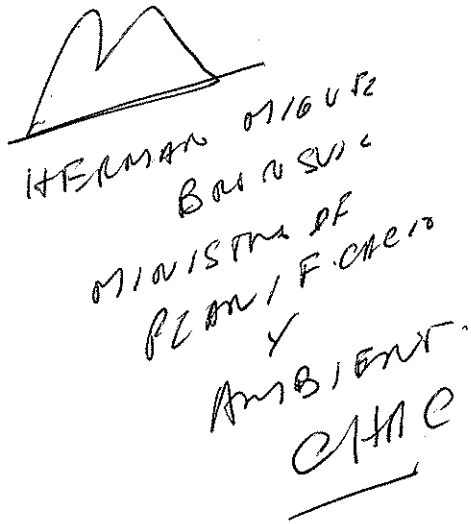 HERMAN MIGUEL
BRUNSWIG
MINISTRO DE
PLANIFICACIO
Y
AMBIENT.
CHAC